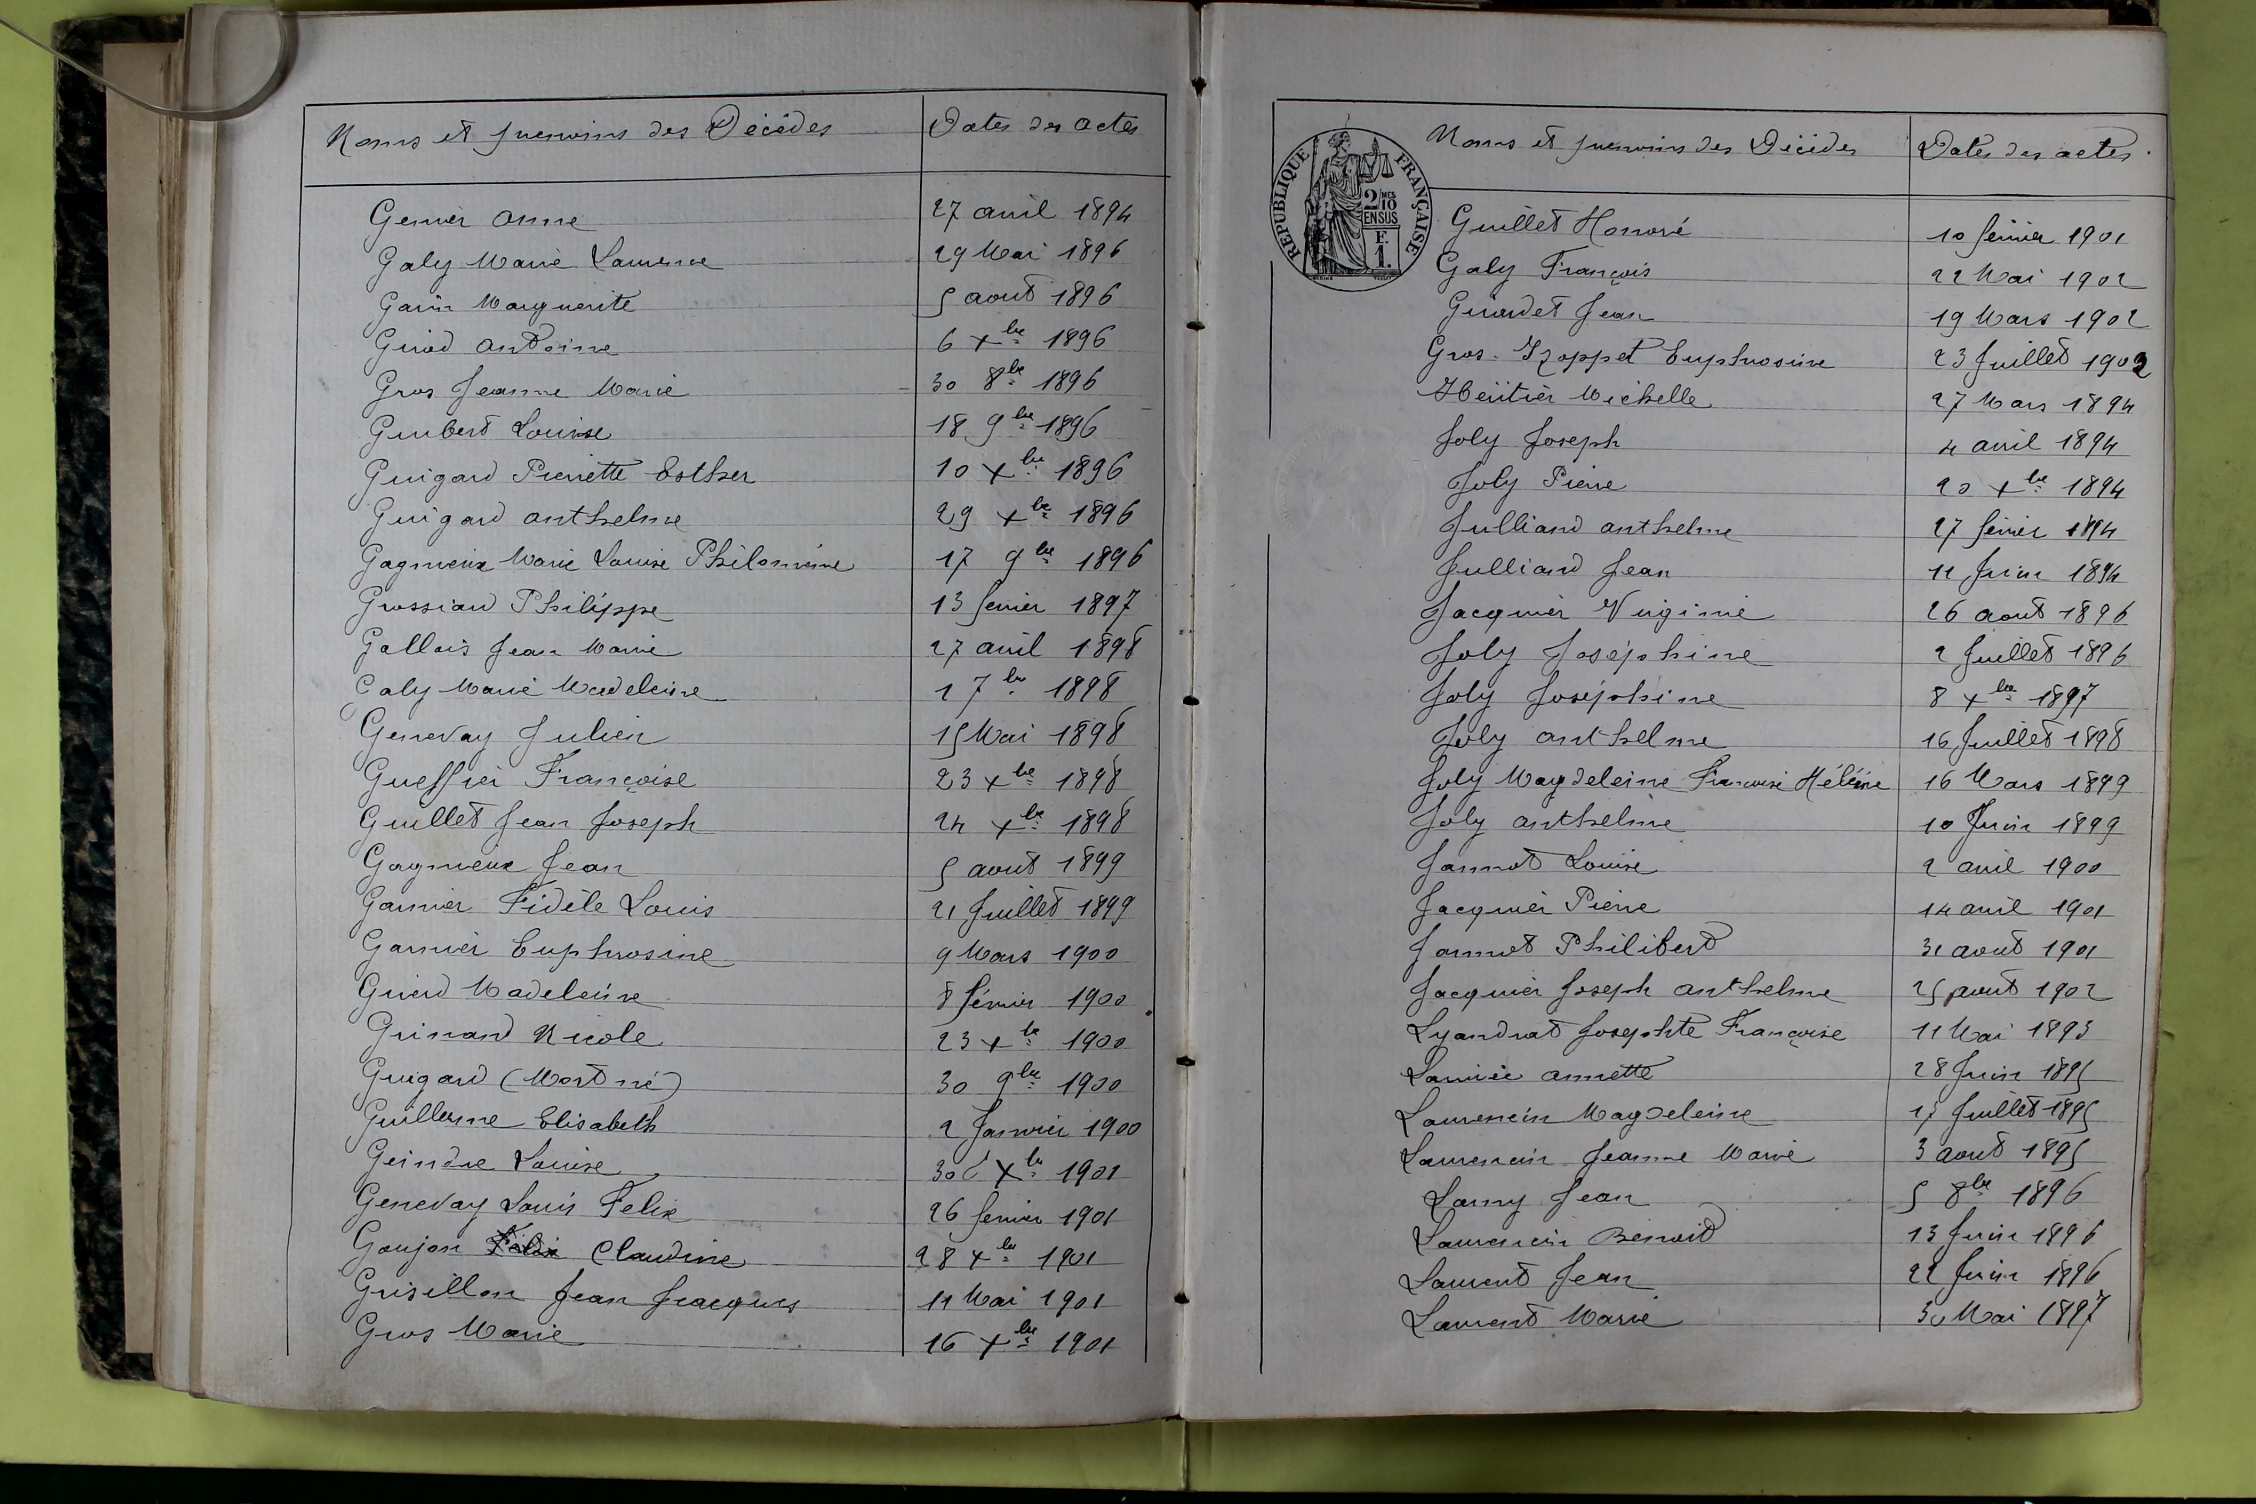 Noms et prénoms des Décédés Dates des actes
Genier Anne 27 avril 1894
Galy Marie Laurence 29 Mai 1896
Garin Marguerite 5 aout 1896
Girod Antoine 6 Xbre 1896
Gros Jeanne Marie 30 8bre 1896
Guibert Louise 18 9bre 1896
Guigard Pierrette Esther 10 Xbre 1896
Guigard anthelme 29 Xbre 1896
Gagneux Marie Louise Philomène 17 9bre 1896
Grossian Philippe 13 fevrier 1897
Gallois Jean Marie 27 avril 1898
Galy Marie Madeleine 1 7bre 1898
Genevay Julien 15 Mai 1898
Gueffier Françoise 23 Xbre 1898
Guillet Jean Joseph 24 Xbre 1898
Gagneux Jean 5 aout 1899
Garnier Fidèle Louis 21 Juillet 1899
Garnier Euphrosine 9 Mars 1900
Girerd Madeleine 8 février 1900
Grinand Nicole 23 Xbre 1900
Guigard (Mort né) 30 9bre 1900
Guillerme Elisabeth 2 Janvier 1900
Geindre Louise 30 Xbre 1901
Genevay Louis Felix 26 fevrier 1901
Goujon Félix Claudine 28 Xbre 1901
Grisillon Jean Jacques 11 Mai 1901
Gros Marie 16 Xbre 1901
RÉPUBLIQUE FRANÇAISE
2/10 MES
EN SUS
F.
1.
Noms et prénoms des Décédés Dates des actes.
Guillet Honoré 10 février 1901
Galy François 22 Mai 1902
Girardet Jean 19 Mars 1902
Gros-Izoppet Euphrosine 23 Juillet 1902
Héritier Michelle 27 Mars 1894
Joly Joseph 4 avril 1894
Joly Pierre 20 Xbre 1894
Julliand anthelme 27 fevrier 1894
Julliand Jean 11 Juin 1894
Jacquier Virginie 26 aout 1896
Joly Joséphine 2 Juillet 1896
Joly Joséphine 8 Xbre 1897
Joly anthelme 16 Juillet 1898
Joly Magdeleine Francoise Hélène 16 Mars 1899
Joly anthelme 10 Juin 1899
Jannot Louise 2 avril 1900
Jacquier Pierre 14 avril 1901
Jannot Philibert 31 aout 1901
Jacquier Joseph anthelme 25 aout 1902
Lyandrat Josephte Françoise 11 Mai 1893
annette 28 Juin 1895
Laurencin Magdeleine 17 Juillet 1895
Laurencin Jeanne Marie 3 aout 1895
Lamy Jean 5 8bre 1896
Laurencin Benoit 13 Juin 1896
Laurent Jean 22 Juin 1896
Laurent Marie 30 Mai 1897